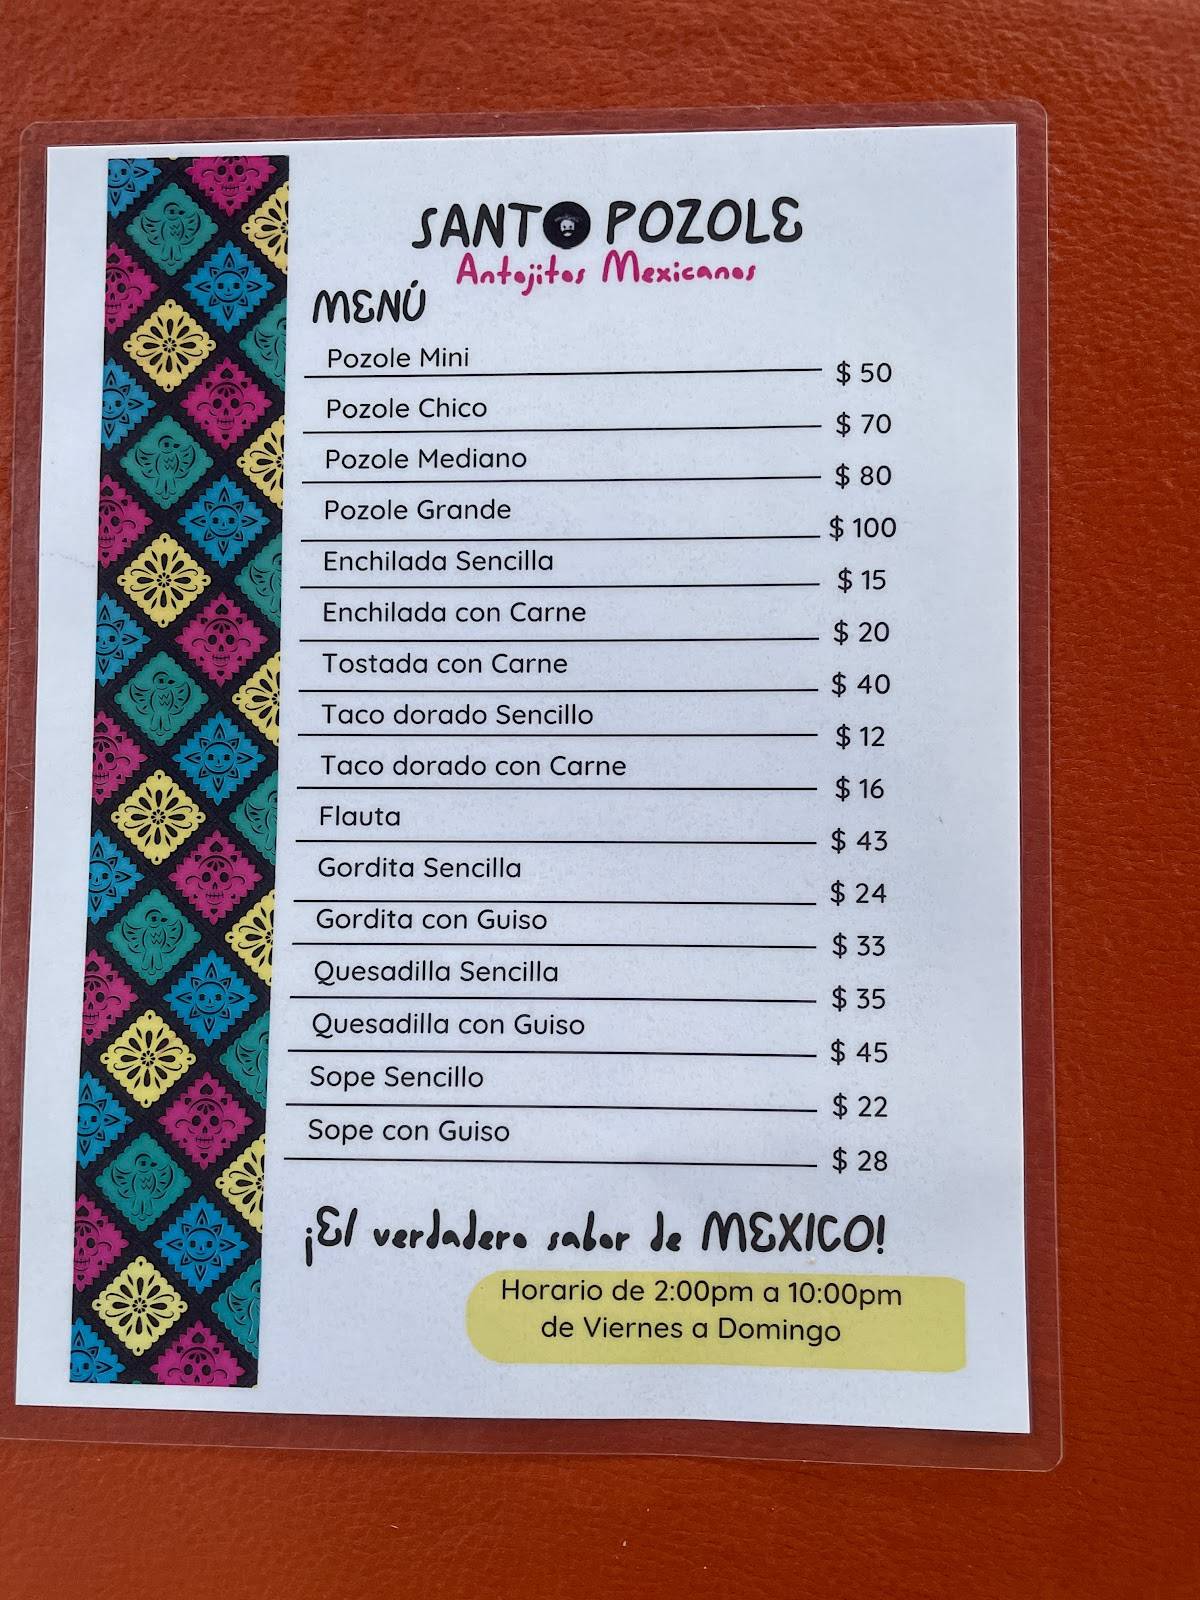 SANTO POZOLE
Antojitos Mexicanos
MENÚ
Pozole Mini $ 50
Pozole Chico $ 70
Pozole Mediano $ 80
Pozole Grande $ 100
Enchilada Sencilla $ 15
Enchilada con Carne $ 20
Tostada con Carne $ 40
Taco dorado Sencillo $ 12
Taco dorado con Carne $ 16
Flauta $ 43
Gordita Sencilla $ 24
Gordita con Guiso $ 33
Quesadilla Sencilla $ 35
Quesadilla con Guiso $ 45
Sope Sencillo $ 22
Sope con Guiso $ 28
¡El verdadero sabor de MEXICO!
Horario de 2:00pm a 10:00pm
de Viernes a Domingo